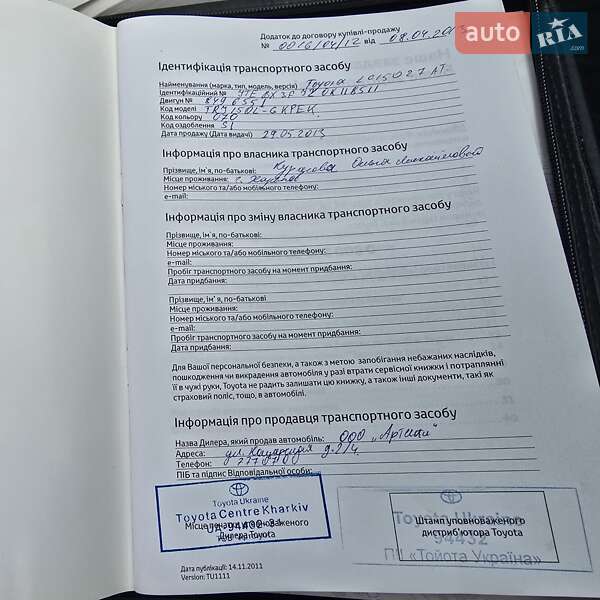 auto RIA .com
Додаток до договору купівлі-продажу
№ 0016/04/12 від 08.04.201
Ідентифікація транспортного засобу
Найменування (марка, тип, модель, версія) Toyota LC150 2.7 AT
Ідентифікаційний №
Двигун №
Код моделі TRJ150L-GKPEK
Код кольору 070
Код оздоблення
Дата продажу (Дата видачі) 29.05.2013
Інформація про власника транспортного засобу
Прізвище, ім'я, по-батькові: Ольга
Місце проживання: г. Харьков
Номер міського та/або мобільного телефону:
e-mail:
Інформація про зміну власника транспортного засобу
Прізвище, ім'я, по-батькові:
Місце проживання:
Номер міського та/або мобільного телефону:
e-mail:
Пробіг транспортного засобу на момент придбання:
Дата придбання:
Прізвище, ім'я, по-батькові
Місце проживання:
Номер міського та/або мобільного телефону:
e-mail:
Пробіг транспортного засобу на момент придбання:
Дата придбання:
Для Вашої персональної безпеки, а також з метою запобігання небажаних наслідків,
пошкодження чи викрадення автомобіля у разі втрати сервісної книжки і потраплянні
її в чужі руки, Toyota не радить залишати цю книжку, а також інші документи, такі як
страховий поліс, тощо, в автомобілі.
Інформація про продавця транспортного засобу
Назва Дилера, який продав автомобіль: ООО „Артсити"
Адреса: ул.
Телефон:
ПІБ та підпис Відповідальної особи:
Toyota Ukraine
Toyota Centre Kharkiv
UA-94432-31
Місце печатки уповноваженого
Дилера Toyota
Toyota Ukraine
94432
ПІІ «Тойота Україна»
Штамп уповноваженого
дистриб'ютора Toyota
Дата публікації: 14.11.2011
Version: TU1111